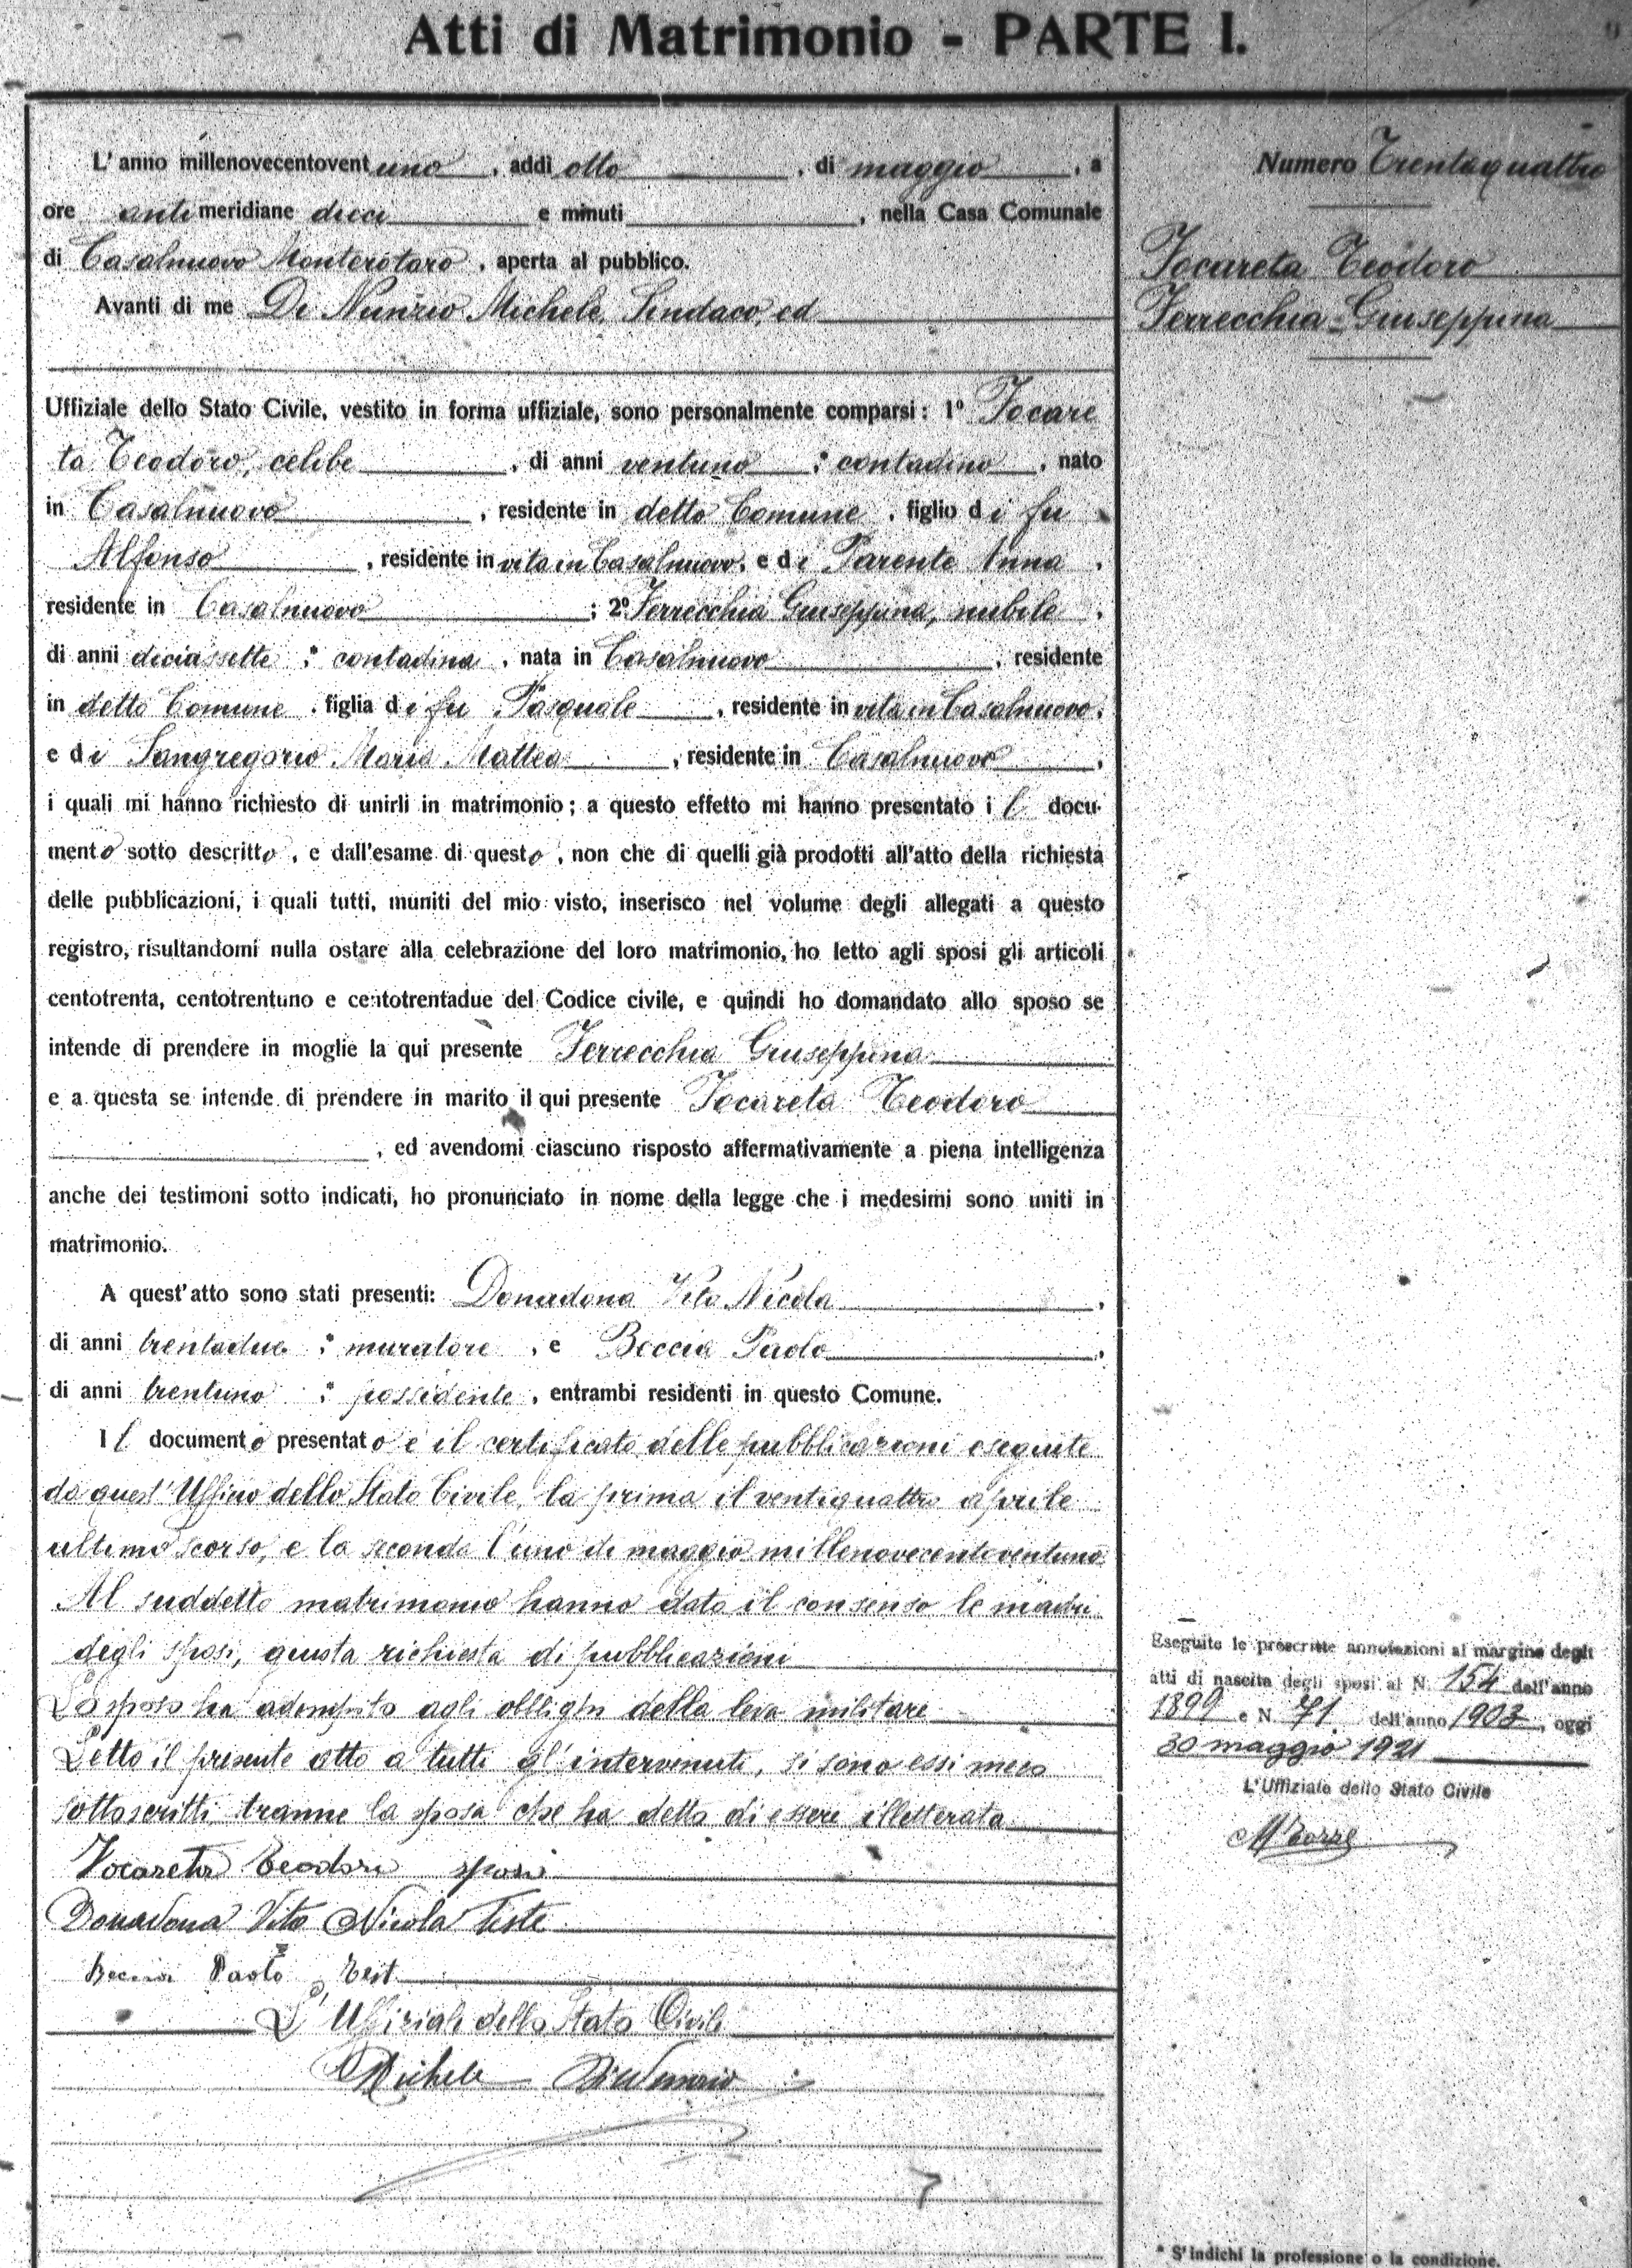 Atti di Matrimonio - PARTE I.
L'anno millenovecentovent uno, addì otto, di maggio, a
ore anti meridiane dieci e minuti , nella Casa Comunale
di Casalnuovo Monterotaro, aperta al pubblico.
Avanti di me De Nunzio Michele, Sindaco, ed
Uffiziale dello Stato Civile, vestito in forma uffiziale, sono personalmente comparsi: 1º Iocare
ta Teodoro, celibe, di anni ventuno ; * contadino, nato
in Casalnuovo, residente in detto Comune, figlio di fu
Alfonso, residente in vita in Casalnuovo, e di Parente Anna,
residente in Casalnuovo; 2º Ferrecchia Giuseppina, nubile,
di anni diciassette ; * contadina, nata in Casalnuovo, residente
in detto Comune, figlia di fu Pasquale, residente in vita in Casalnuovo,
e di Sangregorio Maria Mattea, residente in Casalnuovo,
i quali mi hanno richiesto di unirli in matrimonio; a questo effetto mi hanno presentato il docu-
mento sotto descritto, e dall'esame di questo, non che di quelli già prodotti all'atto della richiesta
delle pubblicazioni, i quali tutti, muniti del mio visto, inserisco nel volume degli allegati a questo
registro, risultandomi nulla ostare alla celebrazione del loro matrimonio, ho letto agli sposi gli articoli
centotrenta, centotrentuno e centotrentadue del Codice civile, e quindi ho domandato allo sposo se
intende di prendere in moglie la qui presente Ferrecchia Giuseppina
e a questa se intende di prendere in marito il qui presente Iocareta Teodoro
, ed avendomi ciascuno risposto affermativamente a piena intelligenza
anche dei testimoni sotto indicati, ho pronunciato in nome della legge che i medesimi sono uniti in
matrimonio.
A quest'atto sono stati presenti: Donadona Vito Nicola,
di anni trentadue ; * muratore, e Boccia Paolo,
di anni trentuno ; * possidente, entrambi residenti in questo Comune.
Il documento presentato è il certificato delle pubblicazioni eseguite
da quest'Uffizio dello Stato Civile, la prima il ventiquattro aprile
ultimo scorso, e la seconda l'uno di maggio millenovecentoventuno.
Al suddetto matrimonio hanno dato il consenso le madri
degli sposi, giusta richiesta di pubblicazioni
Lo sposo ha adempito agli obblighi della leva militare
Letto il presente atto a tutti gl'intervenuti, si sono essi meco
sottoscritti, tranne la sposa che ha detto di essere illetterata
Iocareta Teodoro sposo
Donadona Vito Nicola Teste
Boccia Paolo Test
L'Uffiziale dello Stato Civile
Michele De Nunzio
Numero Trentaquattro
Iocareta Teodoro
Ferrecchia Giuseppina
Eseguite le prescritte annotazioni al margine degli
atti di nascita degli sposi al N. 154 dell'anno
1899 e N. 71 dell'anno 1903, oggi
30 maggio 1921
L'Uffiziale dello Stato Civile
* S'indichi la professione o la condizione.